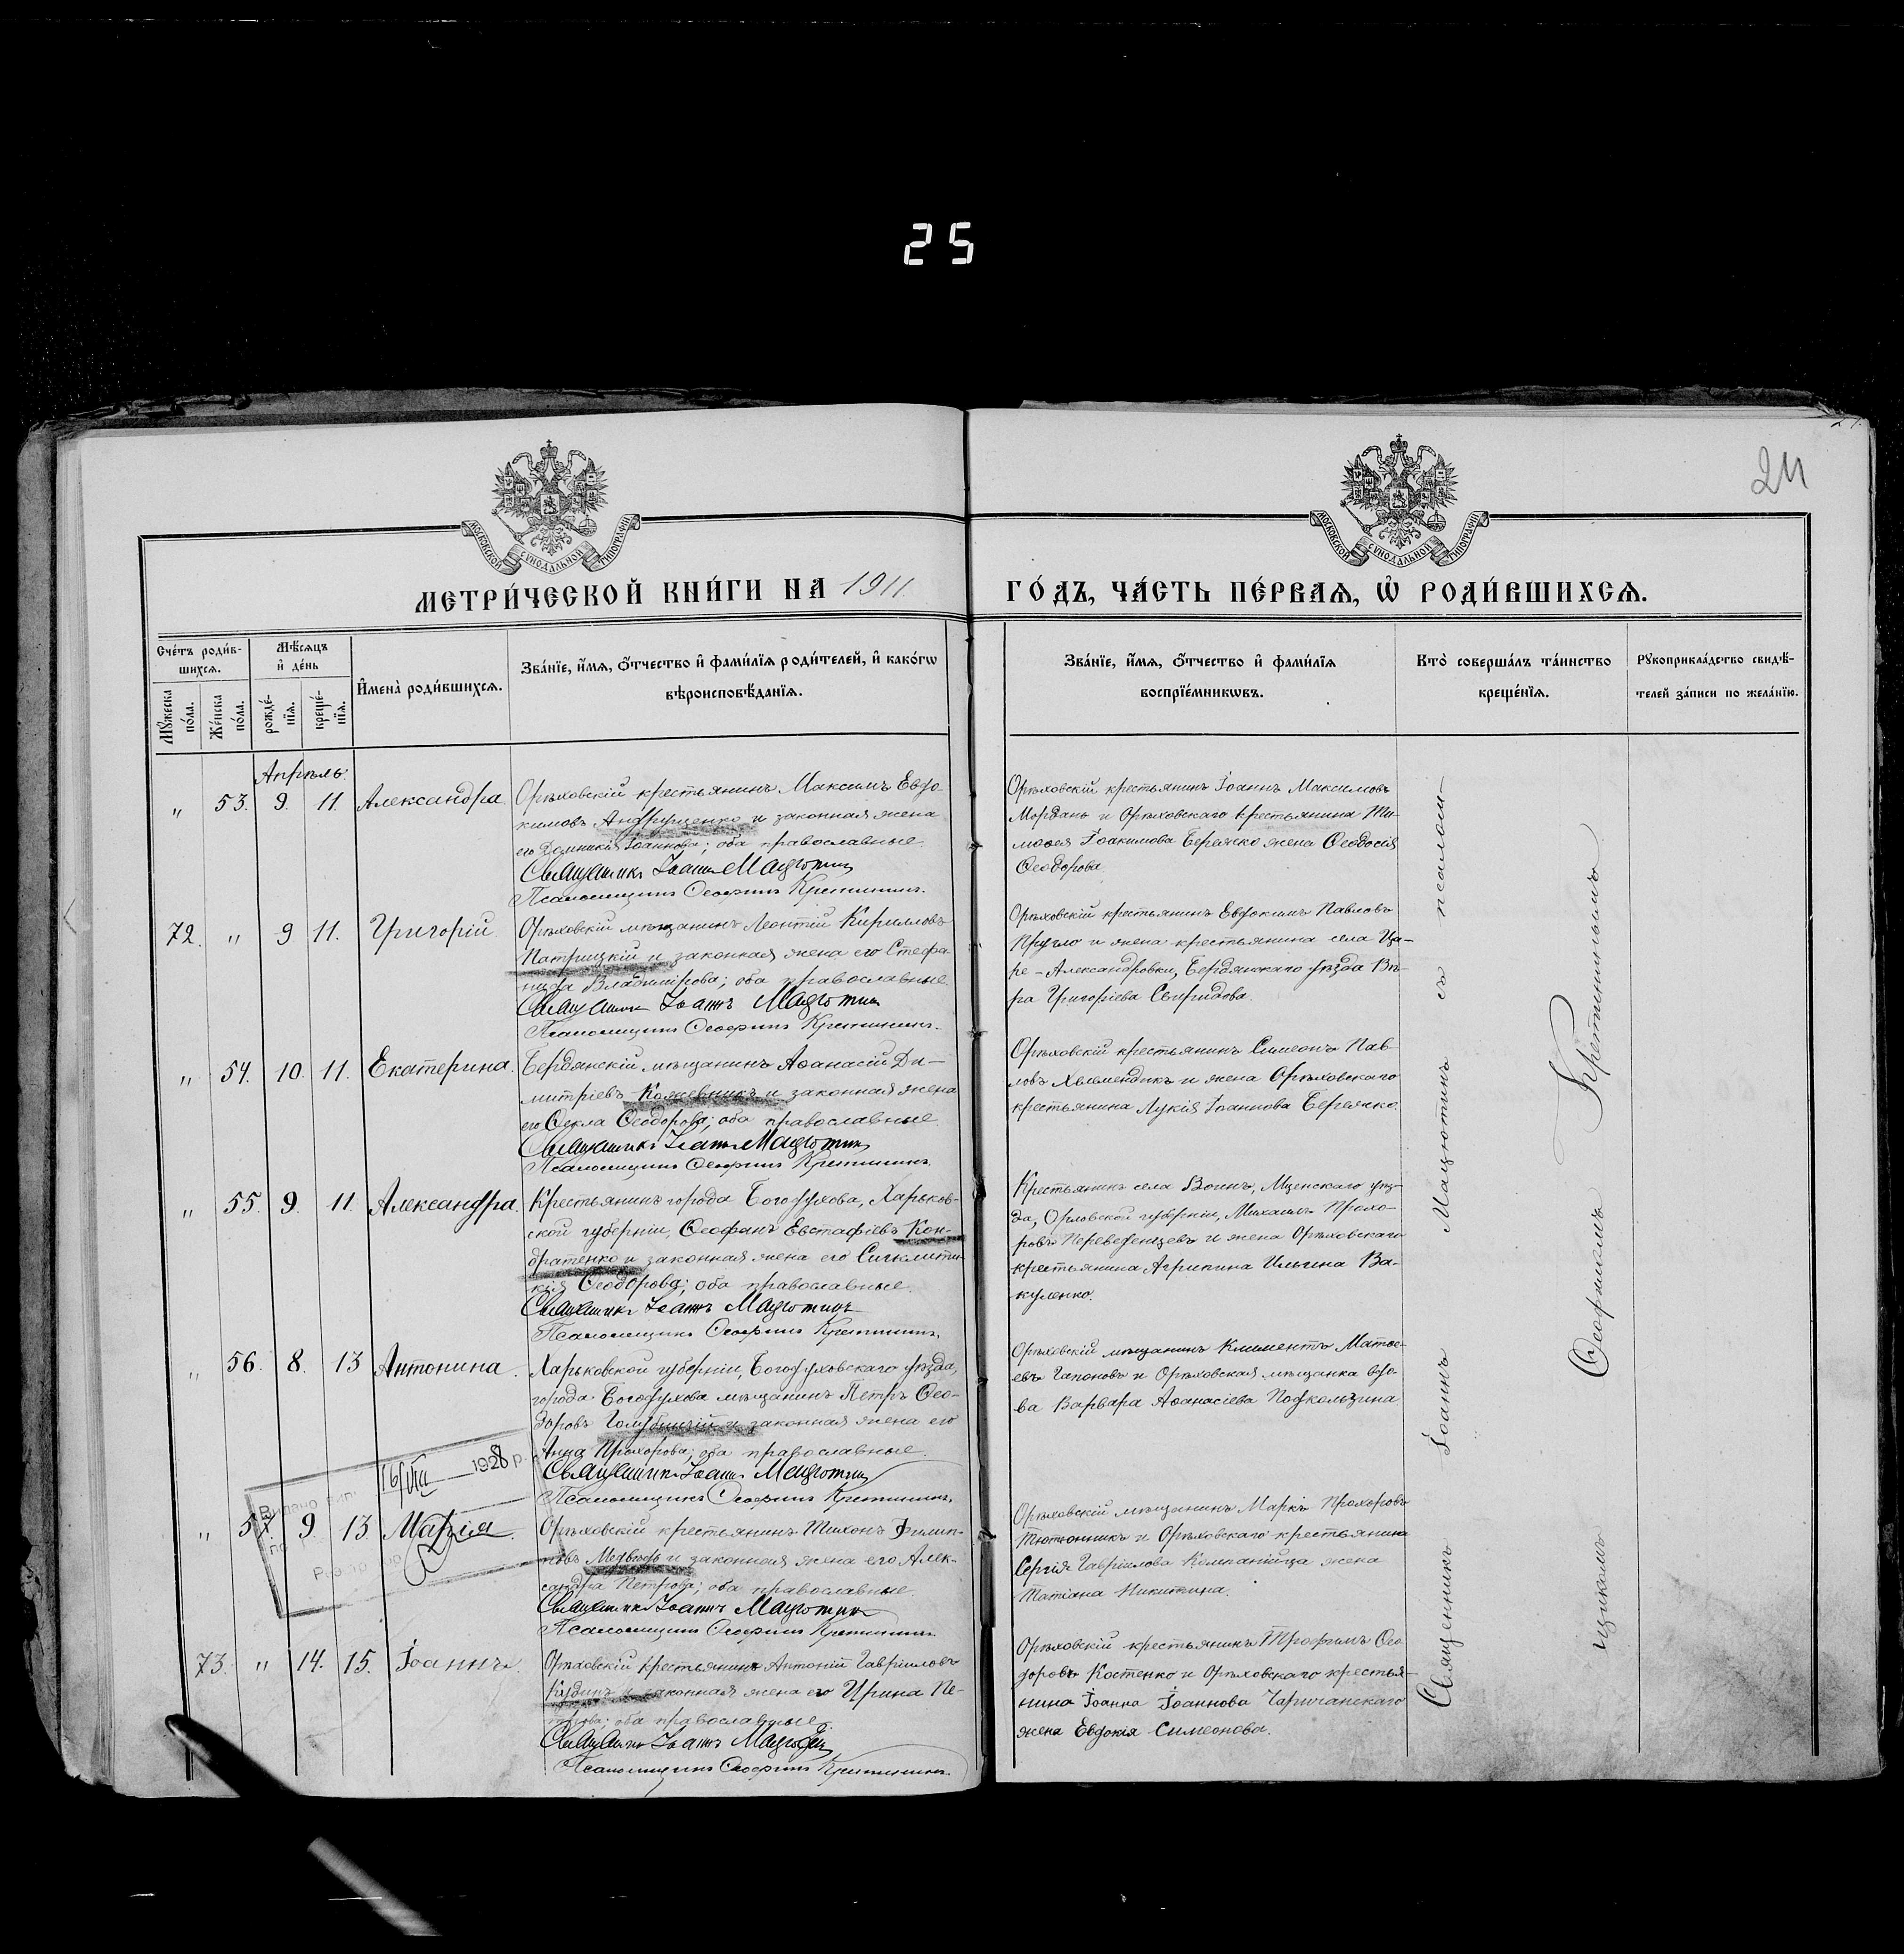 25
24
МОСКОВСКОЙ СѴНОДАЛЬНОЙ ТИПОГРАФІИ
МОСКОВСКОЙ СѴНОДАЛЬНОЙ ТИПОГРАФІИ
МЕТРИ́ЧЕСКОЙ КНИ́ГИ НА 1911 ГО́ДЪ, ЧА́СТЬ ПЕ́РВАѦ, Ѡ҆ РОДИ́ВШИХСѦ.
Сче́тъ роди́в-
шихсѧ.
Мѣ́сѧцъ
и҆ де́нь
Мꙋ́жеска
по́ла.
Же́нска
по́ла.
рожде́-
нїѧ.
креще́-
нїѧ.
И҆мена̀ роди́вшихсѧ.
Зва́нїе, и҆́мѧ, ѻ҆́тчество и҆ фами́лїѧ роди́телей, и҆ како́гѡ
вѣроисповѣ́данїѧ.
Зва́нїе, и҆́мѧ, ѻ҆́тчество и҆ фами́лїѧ
воспрїе́мникѡвъ.
Кто̀ соверша́лъ та́инство
креще́нїѧ.
Рꙋкоприкла́дство свидѣ́-
телей за́писи по жела́нїю.
Апрѣль
" 53. 9. 11. Александра
Орѣховскій крестьянинъ Максимъ Евдо-
кимовъ Андрущенко и законная жена
его Домникія Іоаннова; оба православные.
Священникъ Іоаннъ Мацютинъ
Псаломщикъ Ѳеофилъ Кретининъ.
Орѣховскій крестьянинъ Іоаннъ Максимовъ
Морданъ и Орѣховскаго крестьянина Ти-
моѳея Іоакимова Бережко жена Ѳеодосія
Ѳеодорова
72. " 9 11. Григорій
Орѣховскій мѣщанинъ Леонтій Кирилловъ
Патрицкій и законная жена его Стефа-
нида Владимірова; оба православные.
Священникъ Іоаннъ Мацютинъ
Псаломщикъ Ѳеофилъ Кретининъ.
Орѣховскій крестьянинъ Евдокимъ Павловъ
Пругло и жена крестьянина села Ца-
ре-Александровки, Бердянскаго уѣзда Вѣ-
ра Григоріева Свиридова.
" 54. 10. 11. Екатерина.
Бердянскій мѣщанинъ Аѳанасій Ди-
митріевъ Кожевникъ и законная жена
его Ѳекла Ѳеодорова; оба православные
Священникъ Іоаннъ Мацютинъ
Псаломщикъ Ѳеофилъ Кретининъ.
Орѣховскій крестьянинъ Симеонъ Пав-
ловъ Хелемендикъ и жена Орѣховскаго
крестьянина Лукія Іоаннова Бережко.
" 55. 9. 11. Александра.
Крестьянинъ города Богодухова, Харьков-
ской губерніи, Ѳеофанъ Евстафіевъ Кон-
дратенко и законная жена его Сигклити-
кія Ѳеодорова; оба православные.
Священникъ Іоаннъ Мацютинъ
Псаломщикъ Ѳеофилъ Кретининъ.
Крестьянинъ села Воинъ, Мценскаго уѣз-
да, Орловской губерніи, Михаилъ Прохо-
ровъ Переведенцевъ и жена Орѣховскаго
крестьянина Агрипина Ильина Ва-
куленко.
" 56. 8. 13 Антонина.
Харьковской губерніи, Богодуховскаго уѣзда,
города Богодухова мѣщанинъ Петръ Ѳео-
доровъ Голубицкій и законная жена его
Анна Прохорова; оба православные.
Священникъ Іоаннъ Мацютинъ
Псаломщикъ Ѳеофилъ Кретининъ.
Орѣховскій мѣщанинъ Климентъ Матѳе-
евъ Гапоновъ и Орѣховская мѣщанка вдо-
ва Варвара Аѳанасіева Подкользина
16/VIII 1928 р.
Видано вип.
" 57. 9 13 Марія.
Орѣховскій крестьянинъ Тихонъ Филип-
повъ Медвѣдь и законная жена его Алек-
сандра Петрова; оба православные.
Священникъ Іоаннъ Мацютинъ
Псаломщикъ Ѳеофилъ Кретининъ.
Орѣховскій мѣщанинъ Маркъ Прохоровъ
Тютюнникъ и Орѣховскаго крестьянина
Сергія Гавріилова Компанійца жена
Татіана Никитина.
73. " 14. 15. Іоаннъ.
Орѣховскій крестьянинъ Антоній Гавріиловъ
Кудинъ и законная жена его Ирина Пе-
трова; оба православные.
Священникъ Іоаннъ Мацютинъ
Псаломщикъ Ѳеофилъ Кретининъ.
Орѣховскій крестьянинъ Трофимъ Ѳео-
доровъ Костенко и Орѣховскаго крестья-
нина Іоанна Іоаннова Чаричанскаго
жена Евдокія Симеонова.
Священникъ Іоаннъ Мацютинъ съ псалом-
щикомъ Ѳеофиломъ Кретининымъ